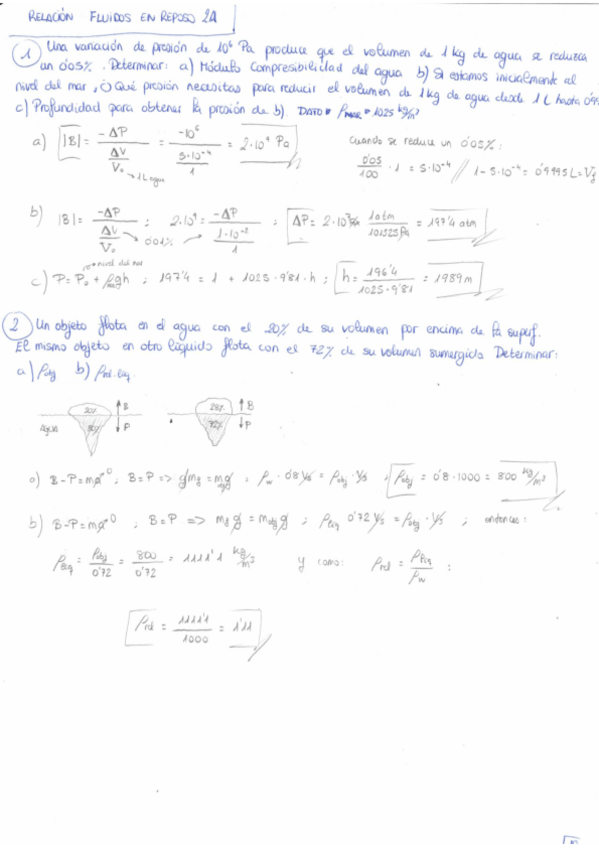 RELACIÓN FLUIDOS EN REPOSO 2A
1 Una variación de presión de 10⁶ Pa produce que el volumen de 1 kg de agua se reduzca
un 0'05%. Determinar: a) Módulo Compresibilidad del agua b) Si estamos inicialmente al
nivel del mar, ¿Qué presión necesitas para reducir el volumen de 1 kg de agua desde 1 L hasta 0'99
c) Profundidad para obtener la presión de b). DATO: ρmar = 1025 kg/m³
a) |B| = -ΔP / (ΔV/V₀) = -10⁶ / (5·10⁻⁴/1) = 2·10⁹ Pa
→ 1L agua
Cuando se reduce un 0'05%:
0'05/100 · 1 = 5·10⁻⁴ // 1 - 5·10⁻⁴ = 0'9995 L = Vf
b) |B| = -ΔP / (ΔV/V₀) ; 2·10⁹ = -ΔP / (1·10⁻²/1) ; ΔP = 2·10⁷ Pa 1atm/101325Pa = 197'4 atm
→ 0'01%
nivel del mar
c) P = P₀ + ρgh ; 197'4 = 1 + 1025·9'81·h ; h = 196'4 / 1025·9'81 = 1989 m
2 Un objeto flota en el agua con el 20% de su volumen por encima de la superf.
El mismo objeto en otro líquido flota con el 72% de su volumen sumergido Determinar:
a) ρobj b) ρrel. liq.
20% B 28% B
AGUA 80% P 72% P
a) B-P=ma⁰ ; B=P => mg = mg = ρw · 0'8 V = ρobj · V ; ρobj = 0'8·1000 = 800 kg/m³
b) B-P=ma⁰ ; B=P => mg = mobj g ; ρliq 0'72 V = ρobj · V ; entonces:
ρliq = ρobj/0'72 = 800/0'72 = 1111'1 kg/m³ y como: ρrel = ρliq/ρw :
ρrel = 1111'1/1000 = 1'11